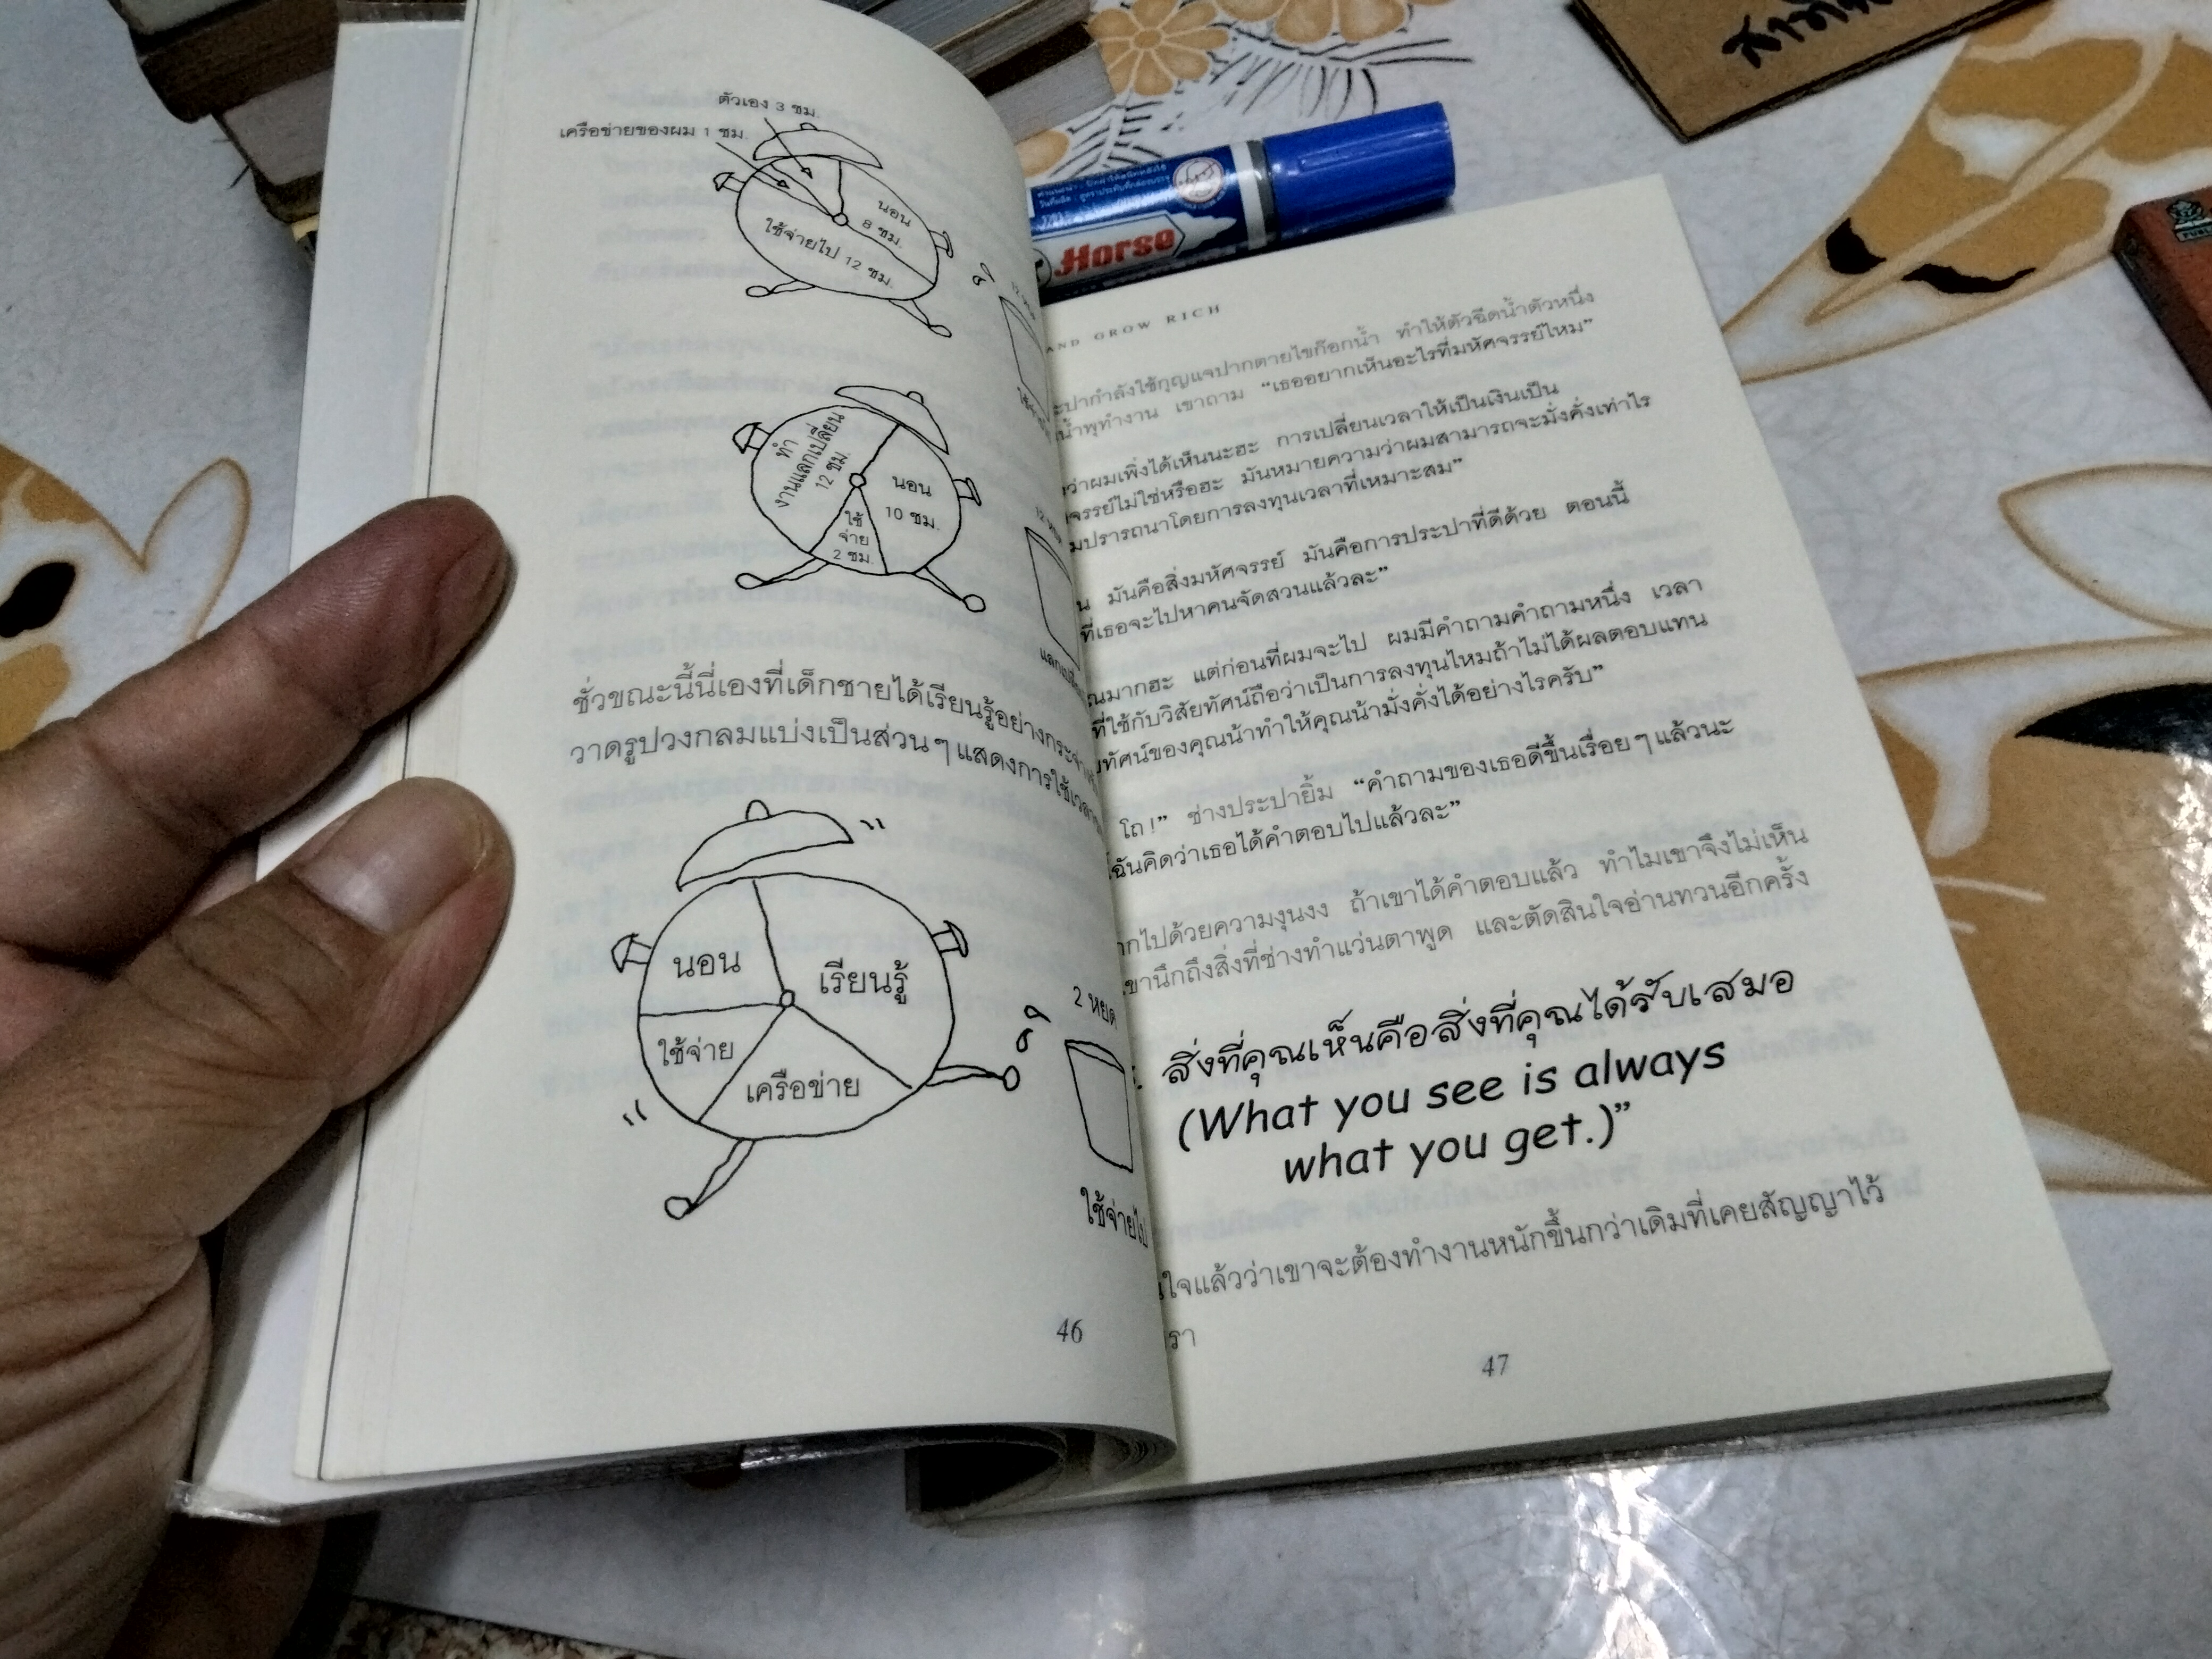 ตัวเอง 3 ชม.
เครือข่ายของผม 1 ชม.
นอน
8 ชม.
ใช้จ่ายไป 12 ชม.
ทำ
งานแลกเปลี่ยน
12 ชม.
นอน
10 ชม.
ใช้
จ่าย
2 ชม.
ชั่วขณะนี้นี่เองที่เด็กชายได้เรียนรู้อย่าง
วาดรูปวงกลมแบ่งเป็นส่วนๆ แสดงการใช้
นอน
เรียนรู้
ใช้จ่าย
เครือข่าย
2 หยด
ใช้จ่ายไป
46
AND GROW RICH
กำลังใช้กุญแจปากตายไขก๊อกน้ำ ทำให้ตัวฉีดน้ำตัวหนึ่ง
น้ำพุทำงาน เขาถาม “เธออยากเห็นอะไรที่มหัศจรรย์ไหม”
ว่าผมเพิ่งได้เห็นนะฮะ การเปลี่ยนเวลาให้เป็นเงินเป็น
จรรย์ไม่ใช่หรือฮะ มันหมายความว่าผมสามารถจะมั่งคั่งเท่าไร
มปรารถนาโดยการลงทุนเวลาที่เหมาะสม”
มันคือสิ่งมหัศจรรย์ มันคือการประปาที่ดีด้วย ตอนนี้
ที่เธอจะไปหาคนจัดสวนแล้วละ”
ณมากฮะ แต่ก่อนที่ผมจะไป ผมมีคำถามคำถามหนึ่ง เวลา
ที่ใช้กับวิสัยทัศน์ถือว่าเป็นการลงทุนไหมถ้าไม่ได้ผลตอบแทน
ทัศน์ของคุณน้าทำให้คุณน้ามั่งคั่งได้อย่างไรครับ”
โถ!” ช่างประปายิ้ม “คำถามของเธอดีขึ้นเรื่อยๆ แล้วนะ
ฉันคิดว่าเธอได้คำตอบไปแล้วละ”
ากไปด้วยความงุนงง ถ้าเขาได้คำตอบแล้ว ทำไมเขาจึงไม่เห็น
เขานึกถึงสิ่งที่ช่างทำแว่นตาพูด และตัดสินใจอ่านทวนอีกครั้ง
สิ่งที่คุณเห็นคือสิ่งที่คุณได้รับเสมอ
(What you see is always
what you get.)”
ใจแล้วว่าเขาจะต้องทำงานหนักขึ้นกว่าเดิมที่เคยสัญญาไว้
รา
47
Horse